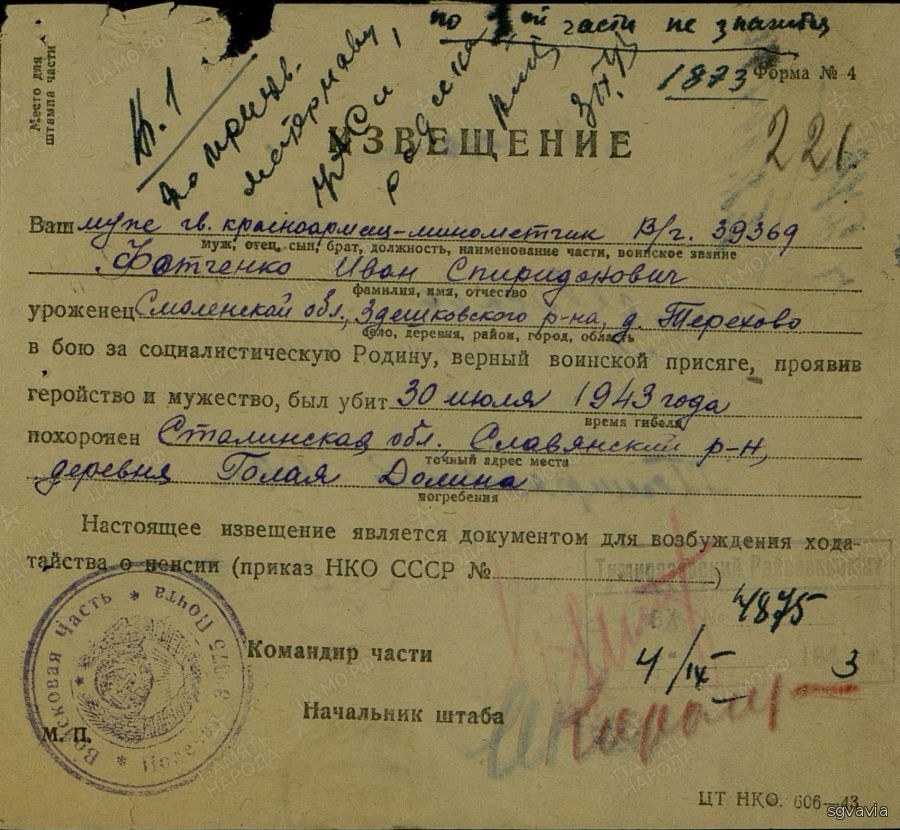 по этой части не значится
Место для
штампа части
1873 Форма № 4
Т. 1
ИЗВЕЩЕНИЕ
221.
Ваш муж гв. красноармец-минометчик В/г. 39369
муж, отец, сын, брат, должность, наименование части, воинское звание
Фотченко Иван Спиридонович
фамилия, имя, отчество
уроженец Смоленской обл., Здешковского р-на, д. Терехово
село, деревня, район, город, область
в бою за социалистическую Родину, верный воинской присяге, проявив
геройство и мужество, был убит 30 июля 1943 года
время гибели
похоронен Сталинская обл., Славянский р-н,
точный адрес места
деревня Голая Долина
погребения
Настоящее извещение является документом для возбуждения хода-
тайства о пенсии (приказ НКО СССР № )
Тимирязевский
4875
Командир части
4/IX – 3
Начальник штаба
М. П.
Войсковая Часть * Полевая Почта
ЦТ НКО. 606—43
sgvavia